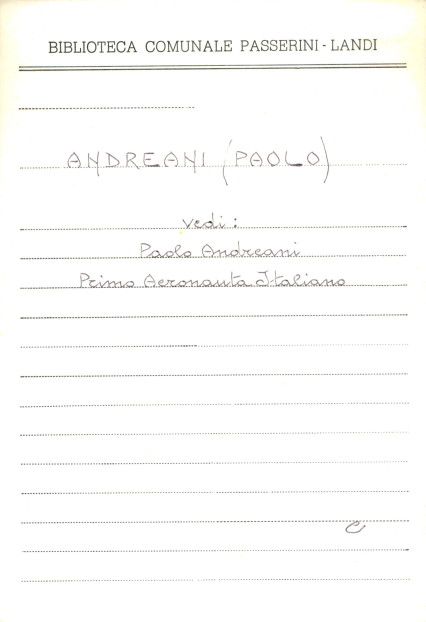 BIBLIOTECA COMUNALE PASSERINI - LANDI
ANDREANI (PAOLO)
vedi:
Paolo Andreani
Primo Aeronauta Italiano
C